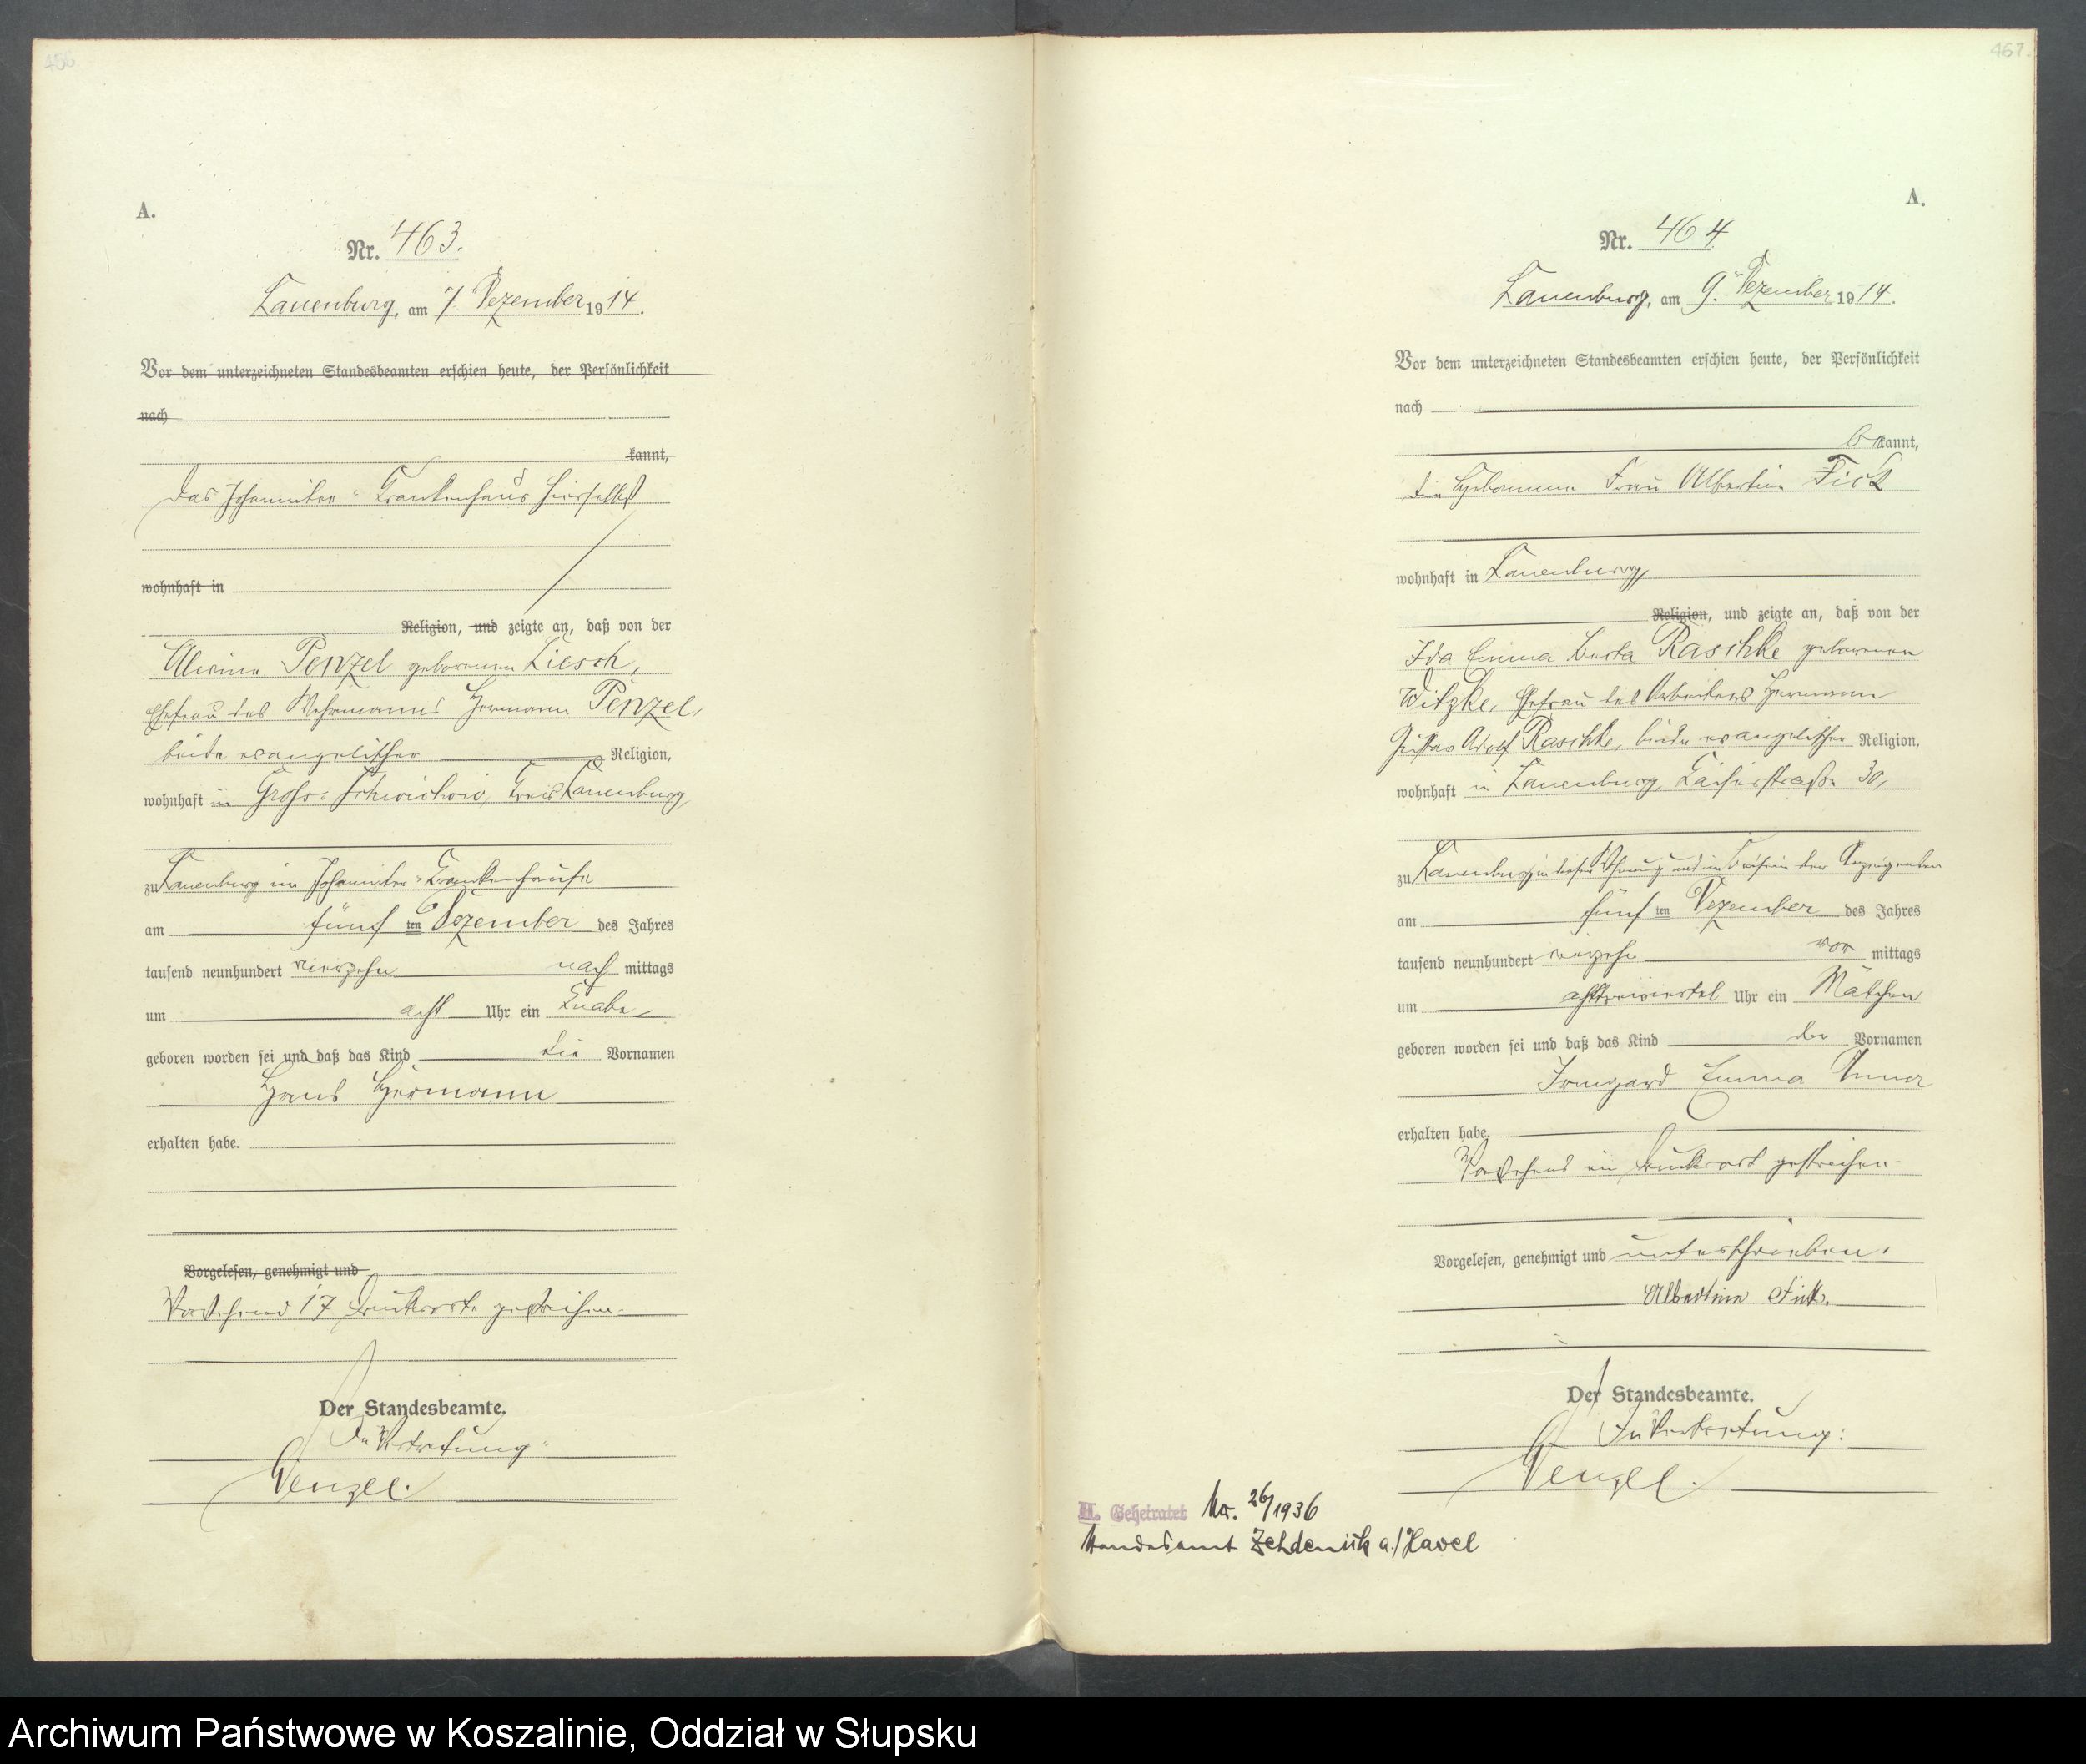 A.
Nr. 463.
Lauenburg, am 7. Dezember 1914.
Vor dem unterzeichneten Standesbeamten erschien heute, der Persönlichkeit
nach
kannt,
das Johanniter-Krankenhaus hierselbst
wohnhaft in
Religion, und zeigte an, daß von der
Penzel geborenen Liesch,
Ehefrau des Wehrmanns Hermann Penzel,
beide evangelischer Religion,
wohnhaft in Groß-Schwichow, Kreis Lauenburg,
zu Lauenburg im Johanniter-Krankenhause
am fünf ten Dezember des Jahres
tausend neunhundert vierzehn nach mittags
um acht Uhr ein Knabe
geboren worden sei und daß das Kind die Vornamen
Hans Hermann
erhalten habe.
Vorgelesen, genehmigt und
Vorstehend 17 Druckworte gestrichen.
Der Standesbeamte.
In Vertretung:
Wenzel.
467.
A.
Nr. 464
Lauenburg, am 9. Dezember 1914.
Vor dem unterzeichneten Standesbeamten erschien heute, der Persönlichkeit
nach
bekannt,
die Hebamme Frau Albertine Fick
wohnhaft in Lauenburg,
Religion, und zeigte an, daß von der
Ida Emma Berta Raschke geborenen
Witzke, Ehefrau des Arbeiters Hermann
Gustav Adolf Raschke, beide evangelischer Religion,
wohnhaft in Lauenburg, Kaiserstraße 30,
zu Lauenburg in dieser Wohnung und im Beisein der Anzeigenden
am fünf ten Dezember des Jahres
tausend neunhundert vierzehn vor mittags
um achtdreiviertel Uhr ein Mädchen
geboren worden sei und daß das Kind die Vornamen
Irmgard Emma Anna
erhalten habe.
Vorstehend ein Druckwort gestrichen
Vorgelesen, genehmigt und unterschrieben.
Albertine Fick.
Der Standesbeamte.
In Vertretung:
Wenzel.
II. Geheiratet Nr. 26/1936
Standesamt Zehdenick a./Havel
Archiwum Państwowe w Koszalinie, Oddział w Słupsku